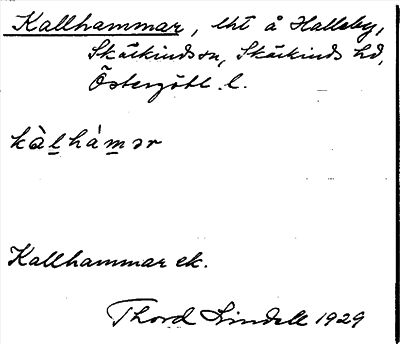 Kallhammar, lht å Halleby,
Skärkinds sn, Skärkinds hd,
Östergötl. l.
kàl̲hám̲ər
Kallhammar ek.
Thord Lindell 1929